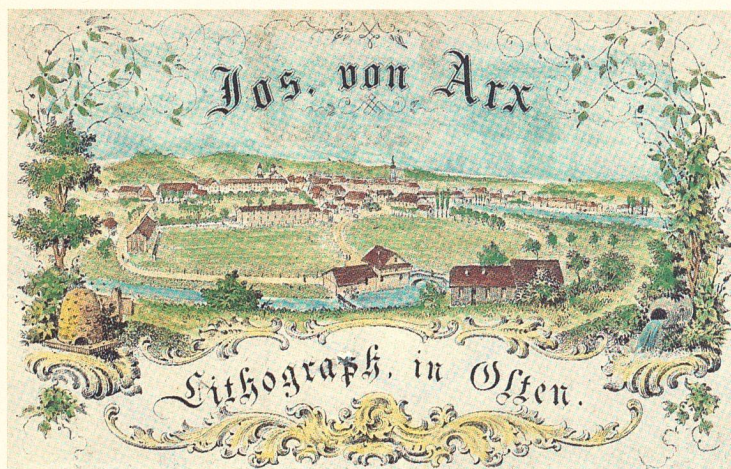 Jos. von Arx
Lithograph, in Olten.